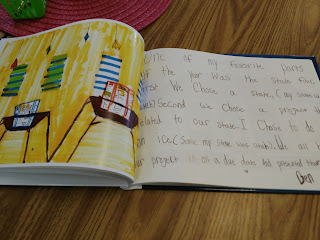 One of my favorite parts
of the year was the state fair.
First we chose a state, (my state was
Second we chose a project that
related to our state. I chose to do
an ice (Since my state was
We all
our project in on a due date and presented their